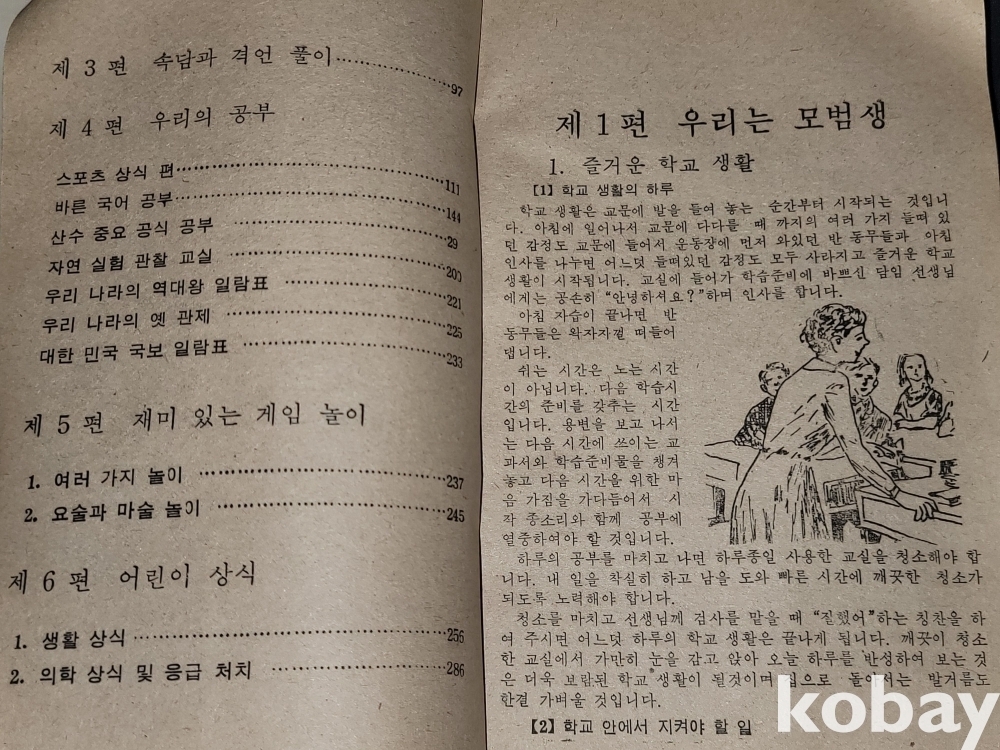 제 3 편 속담과 격언 풀이 97
제 4 편 우리의 공부
스포츠 상식 편 111
바른 국어 공부 144
산수 중요 공식 공부 29
자연 실험 관찰 교실 200
우리 나라의 역대왕 일람표 221
우리 나라의 옛 관제 225
대한 민국 국보 일람표 233
제 5 편 재미 있는 게임 놀이
1. 여러 가지 놀이 237
2. 요술과 마술 놀이 245
제 6 편 어린이 상식
1. 생활 상식 256
2. 의학 상식 및 응급 처치 286
제 1 편 우리는 모범생
1. 즐거운 학교 생활
【1】 학교 생활의 하루
학교 생활은 교문에 발을 들여 놓는 순간부터 시작되는 것입니
다. 아침에 일어나서 교문에 다다를 때 까지의 여러 가지 들떠 있
던 감정도 교문에 들어서 운동장에 먼저 와있던 반 동무들과 아침
인사를 나누면 어느덧 들떠있던 감정도 모두 사라지고 즐거운 학교
생활이 시작됩니다. 교실에 들어가 학습준비에 바쁘신 담임 선생님
에게는 공손히 “안녕하셔요?”하며 인사를 합니다.
아침 자습이 끝나면 반
동무들은 왁자자껄 떠들어
댑니다.
쉬는 시간은 노는 시간
이 아닙니다. 다음 학습시
간의 준비를 갖추는 시간
입니다. 용변을 보고 나서
는 다음 시간에 쓰이는 교
과서와 학습준비물을 챙겨
놓고 다음 시간을 위한 마
음 가짐을 가다듬어서 시
작 종소리와 함께 공부에
열중하여야 할 것입니다.
하루의 공부를 마치고 나면 하루종일 사용한 교실을 청소해야 합
니다. 내 일을 착실히 하고 남을 도와 빠른 시간에 깨끗한 청소가
되도록 노력해야 합니다.
청소를 마치고 선생님께 검사를 맡을 때 “잘했어”하는 칭찬을 하
여 주시면 어느덧 하루의 학교 생활은 끝나게 됩니다. 깨끗이 청소
한 교실에서 가만히 눈을 감고 앉아 오늘 하루를 반성하여 보는 것
은 더욱 보람된 학교 생활이 될것이며 집으로 돌아서는 발거름도
한결 가벼울 것입니다.
【2】 학교 안에서 지켜야 할 일
kobay